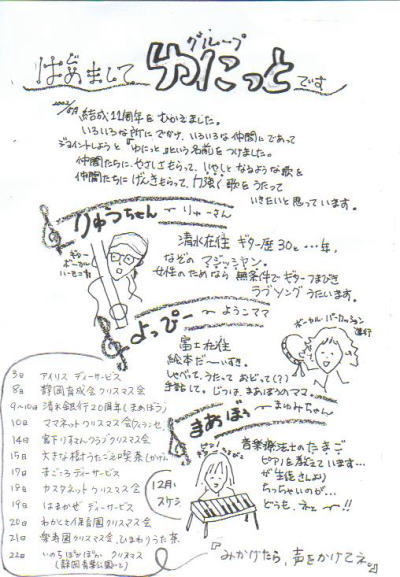 グループ
はじめまして ゆにっと です
結成11周年をむかえました。
いろいろな所にでかけ、いろいろな仲間にであって
ジョイントしようと『ゆにっと』という名前をつけました。
仲間たちに、やさしさもらって、いやしとなるような歌を
仲間たちにげんきもらって、力強く歌をうたって
いきたいと思っています。
りゅうちゃん 〜りゅーさん
ギター
ボーカル
ハーモニカ
清水在住 ギター歴30と…年、
なぞのマジッシャン。
女性のためなら無条件でギターつまびき
ラブソングうたいます。
よっぴー 〜ようこママ
ボーカル パーカッション
進行
富士在住
絵本だ〜いすき。
しゃべって、うたって おどって(?)
手話して。じつは、まあぼうのママ。
まあぼう 〜まゆみちゃん
ピアノ
音楽療法士のたまご
ピアノを教えています…
が生徒さんより
ちっちゃいのが…
どうも、ネェ〜!!
12月、
スケジ
3日 アイリス ディーサービス
8日 静岡育成会クリスマス会
9〜10日 清水銀行20周年(まあぼう)
10日 ママネットクリスマス会
14日 宮下りまさんクラブクリスマス会
15日 大きな橋
17日 まごころディーサービス
18日 カスタネットクリスマス会
19日 はるかぜディーサービス
20日 わかくさ保育園クリスマス会
21日 クリスマス会、ひまわりうた
22日 いのちぽかぽかin クリスマス
『みかけたら、声をかけてネ。』